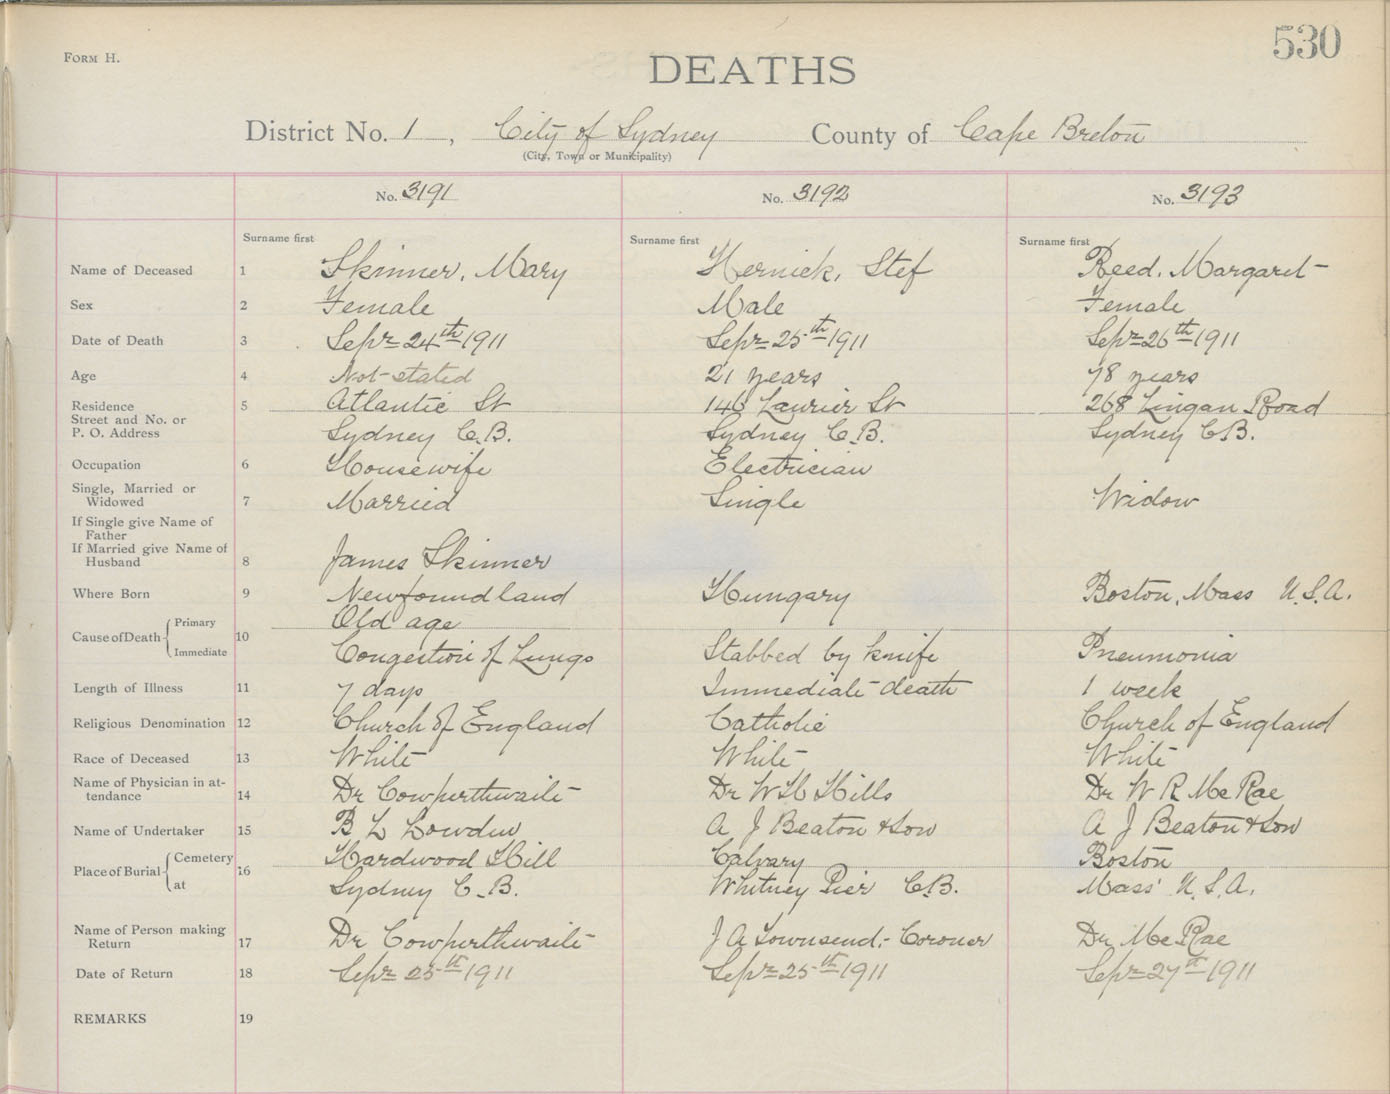 530
FORM H.
DEATHS
District No. 1, City of Sydney County of Cape Breton
(City, Town or Municipality)
No. 3191 No. 3192 No. 3193
Surname first Surname first Surname first
Name of Deceased 1 Skinner, Mary Hernick, Stef Reed, Margaret
Sex 2 Female Male Female
Date of Death 3 Sepr 24th 1911 Sepr 25th 1911 Sepr 26th 1911
Age 4 Not stated 21 years 78 years
Residence 5 Atlantic St 146 Laurier St 268 Lingan Road
Street and No. or
P. O. Address Sydney C.B. Sydney C.B. Sydney C.B.
Occupation 6 Housewife Electrician
Single, Married or
Widowed 7 Married Single Widow
If Single give Name of
Father
If Married give Name of
Husband 8 James Skinner
Where Born 9 Newfoundland Hungary Boston, Mass U.S.A.
Cause of Death Primary 10 Old age
Immediate Congestion of Lungs Stabbed by knife Pneumonia
Length of Illness 11 7 days Immediate death 1 week
Religious Denomination 12 Church of England Catholic Church of England
Race of Deceased 13 White White White
Name of Physician in at-
tendance 14 Dr Cowperthwaite Dr W H Hills Dr W R McRae
Name of Undertaker 15 B L Lowden A J Beaton & Son A J Beaton & Son
Place of Burial Cemetery 16 Hardwood Hill Calvary Boston
at Sydney C.B. Whitney Pier C.B. Mass' U.S.A.
Name of Person making
Return 17 Dr Cowperthwaite J A Townsend, - Coroner Dr McRae
Date of Return 18 Sepr 25th 1911 Sepr 25th 1911 Sepr 27th 1911
REMARKS 19